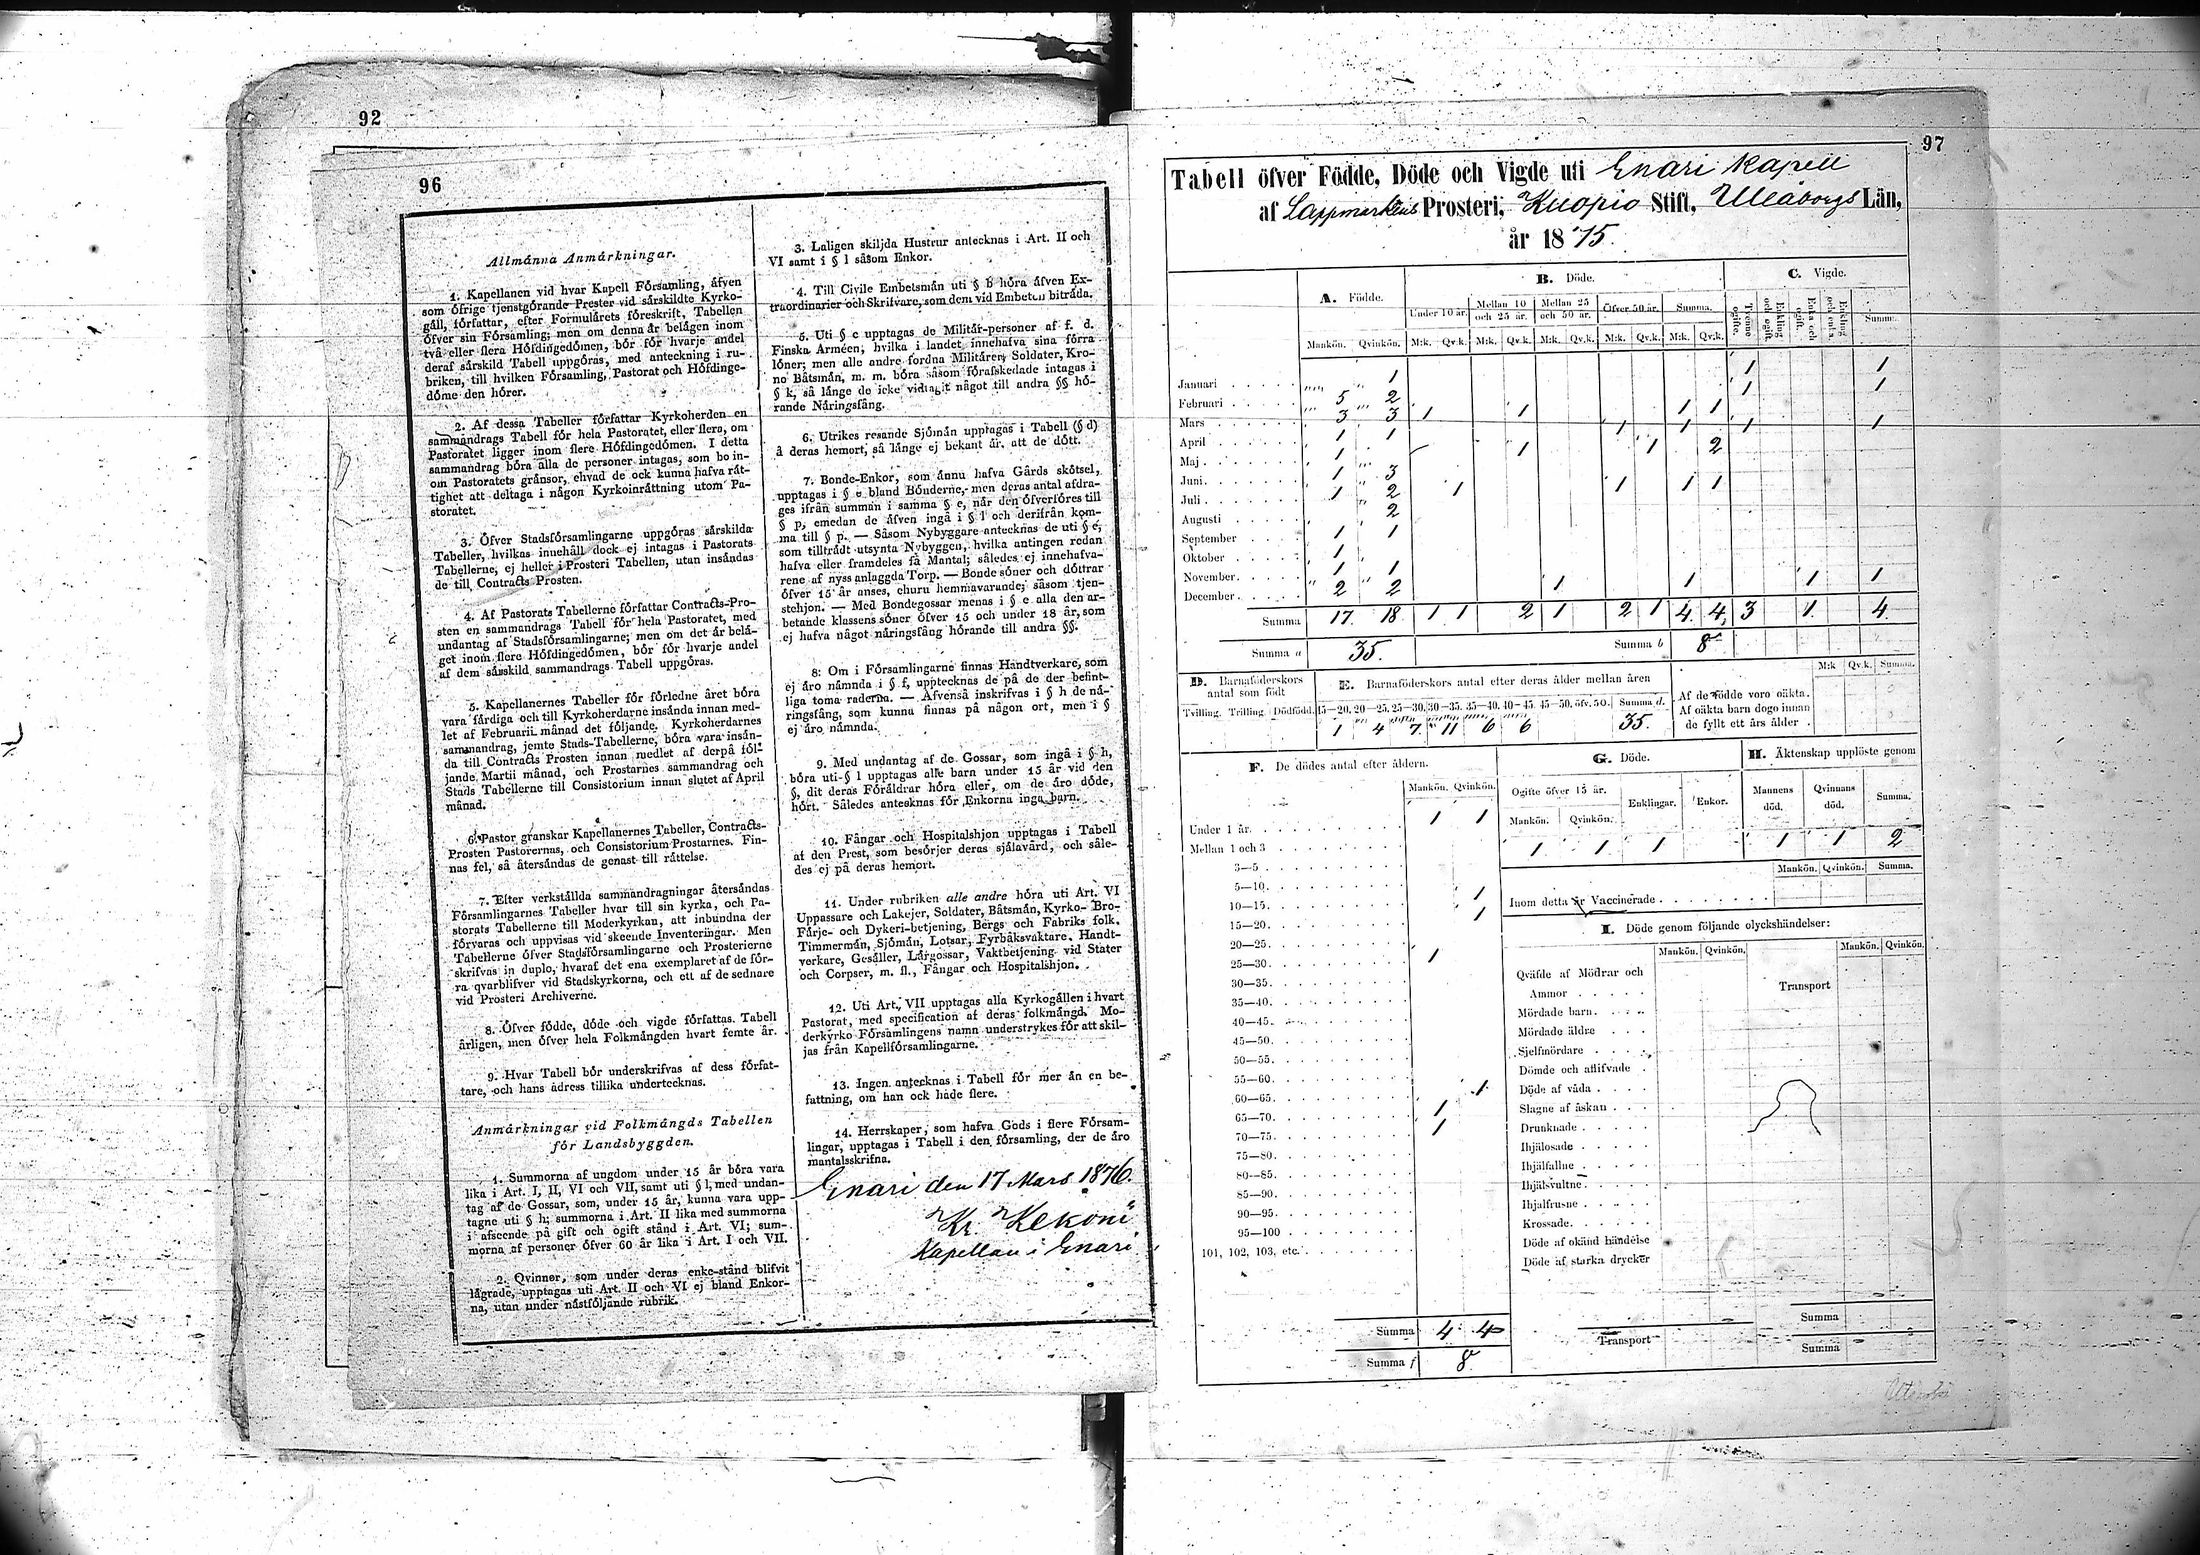 92
96
Allmänna Anmärkningar.
1. Kapellanen vid hvar Kapell Församling, äfven
som öfrige tjenstgörande Prester vid särskildte Kyrko-
gäll, författar, efter Formulärets föreskrift, Tabellen
öfver sin Församling; men om denna är belägen inom
två eller flera Höfdingedömen, bör för hvarje andel
deraf särskild Tabell uppgöras, med anteckning i ru-
briken, till hvilken Församling, Pastorat och Höfdinge-
döme den hörer.
2. Af dessa Tabeller författar Kyrkoherden en
sammandrags Tabell för hela Pastoratet, eller flera, om
Pastoratet ligger inom flere Höfdingedömen. I detta
sammandrag böra alla de personer intagas, som bo in-
om Pastoratets gränsor, ehvad de ock kunna hafva rät-
tighet att deltaga i någon Kyrkoinrättning utom Pa-
storatet.
3. Öfver Stadsförsamlingarne uppgöras särskilda
Tabeller, hvilkas innehåll dock ej intagas i Pastorats
Tabellerne, ej heller i Prosteri Tabellen, utan insändas
de till Contracts Prosten.
4. Af Pastorats Tabellerne författar Contracts-Pro-
sten en sammandrags Tabell för hela Pastoratet, med
undantag af Stadsförsamlingarne; men om det är belä-
get inom flere Höfdingedömen, bör för hvarje andel
af dem särskild sammandrags Tabell uppgöras.
5. Kapellanernes Tabeller för förledne året böra
vara färdiga och till Kyrkoherdarne insända innan med-
let af Februarii månad det följande. Kyrkoherdarnes
sammandrag, jemte Stads-Tabellerne, böra vara insän-
da till Contracts Prosten innan medlet af derpå föl-
jande Martii månad, och Prostarnes sammandrag och
Stads Tabellerne till Consistorium innan slutet af April
månad.
6. Pastor granskar Kapellanernes Tabeller, Contracts-
Prosten Pastorernas, och Consistorium Prostarnes. Fin-
nas fel, så återsändas de genast till rättelse.
7. Efter verkställda sammandragningar återsändas
Församlingarnes Tabeller hvar till sin kyrka, och Pa-
storats Tabellerne till Moderkyrkan, att inbundna der
förvaras och uppvisas vid skeende Inventeringar. Men
Tabellerne öfver Stadsförsamlingarne och Prosterierne
skrifvas in duplo, hvaraf det ena exemplaret af de för-
ra qvarblifver vid Stadskyrkorna, och ett af de sednare
vid Prosteri Archiverne.
8. Öfver födde, döde och vigde författas Tabell
årligen, men öfver hela Folkmängden hvart femte år.
9. Hvar Tabell bör underskrifvas af dess förfat-
tare, och hans adress tillika undertecknas.
Anmärkningar vid Folkmängds Tabellen
för Landsbyggden.
1. Summorna af ungdom under 15 år böra vara
lika i Art. I, II, VI och VII, samt uti § l, med undan-
tag af de Gossar, som, under 15 år, kunna vara upp-
tagne uti § h; summorna i Art. II lika med summorna
i afseende på gift och ogift stånd i Art. VI; sum-
morna af personer öfver 60 år lika i Art. I och VII.
2. Qvinner, som under deras enke-stånd blifvit
lägrade, upptagas uti Art. II och VI ej bland Enkor-
na, utan under nästföljande rubrik.
3. Laligen skiljda Hustrur antecknas i Art. II och
VI samt i § l såsom Enkor.
4. Till Civile Embetsmän uti § b höra äfven Ex-
traordinarier och Skrifvare, som dem vid Embeten biträda.
5. Uti § c upptagas de Militär-personer af f. d.
Finska Arméen, hvilka i landet innehafva sina förra
löner; men alle andre fordna Militärer, Soldater, Kro-
no Båtsmän, m. m. böra såsom förafskedade intagas i
§ k, så länge de icke vidtagit något till andra §§ hö-
rande Näringsfång.
6. Utrikes resande Sjömän upptagas i Tabell (§ d)
å deras hemort, så länge ej bekant är, att de dött.
7. Bonde-Enkor, som ännu hafva Gårds skötsel,
upptagas i § e bland Bönderne, men deras antal afdra-
ges ifrån summan i samma § e, när den öfverföres till
§ p, emedan de äfven ingå i § l och derifrån kom-
ma till § p. — Såsom Nybyggare antecknas de uti § e,
som tillträdt utsynta Nybyggen, hvilka antingen redan
hafva eller framdeles få Mantal; således ej innehafva-
rene af nyss anlaggda Torp. — Bonde söner och döttrar
öfver 15 år anses, ehuru hemmavarande, såsom tjen-
stehjon. — Med Bondegossar menas i § e alla den ar-
betande klassens söner öfver 15 och under 18 år, som
ej hafva något näringsfång hörande till andra §§.
8. Om i Församlingarne finnas Handtverkare, som
ej äro nämnda i § f, upptecknas de på de der befint-
liga toma raderna. — Äfvenså inskrifvas i § h de nä-
ringsfång, som kunna finnas på någon ort, men i §
ej äro nämnda.
9. Med undantag af de Gossar, som ingå i § h,
böra uti § l upptagas alle barn under 15 år vid den
§, dit deras Föräldrar höra eller, om de äro döde,
hört. Således antecknas för Enkorna inga barn.
10. Fångar och Hospitalshjon upptagas i Tabell
af den Prest, som besörjer deras själavård, och såle-
des ej på deras hemort.
11. Under rubriken alle andre höra uti Art. VI
Uppassare och Lakejer, Soldater, Båtsmän, Kyrko- Bro-
Färje- och Dykeri-betjening, Bergs och Fabriks folk,
Timmermän, Sjömän, Lotsar, Fyrbåksvaktare, Handt-
verkare, Gesäller, Lärgossar, Vaktbetjening vid Stater
och Corpser, m. fl., Fångar och Hospitalshjon.
12. Uti Art. VII upptagas alla Kyrkogällen i hvart
Pastorat, med specification af deras folkmängd. Mo-
derkyrko Församlingens namn understrykes för att skil-
jas från Kapellförsamlingarne.
13. Ingen antecknas i Tabell för mer än en be-
fattning, om han ock hade flere.
14. Herrskaper, som hafva Gods i flere Försam-
lingar, upptagas i Tabell i den församling, der de äro
mantalsskrifna.
Enari den 17 Mars 1876.
Kr. Kekoni
Kapellan i Enari
97
Tabell öfver Födde, Döde och Vigde uti Enari Kapell
af Lappmarkens Prosteri, Kuopio Stift, Uleåborgs Län,
år 1875.
A. Födde. B. Döde. C. Vigde.
Under 10 år. Mellan 10 och 25 år. Mellan 25 och 50 år. Öfver 50 år. Summa. Tvenne ogifte. Enkling och ogift. Enka och ogift. Enkling och enka. Summa.
Mankön. Qvinkön. M:k. Qv.k. M:k. Qv.k. M:k. Qv.k. M:k. Qv.k. M:k. Qv.k.
Januari 1 1 1
Februari 5 2 1 1
Mars 3 3 1 1 1 1
April 1 1 1 1 1 1
Maj 1 1 1 2
Juni 1 3
Juli 1 2 1 1 1 1
Augusti 2
September 1 1
Oktober 1
November 1 1
December 2 2 1 1 1 1
Summa 17 18 1 1 2 1 2 1 4 4 3 1 4
Summa a 35. Summa b 8
D. Barnaföderskors antal som födt
Tvilling. Trilling. Dödfödd.
E. Barnaföderskors antal efter deras ålder mellan åren
15—20. 20—25. 25—30. 30—35. 35—40. 40—45. 45—50. öfv. 50. Summa d.
1 4 7 11 6 6 35.
M:k Qv.k. Summa.
Af de födde voro oäkta.
Af oäkta barn dogo innan
de fyllt ett års ålder
F. De dödes antal efter åldern.
Mankön. Qvinkön.
Under 1 år. 1 1
Mellan 1 och 3
3—5
5—10. 1
10—15. 1
15—20.
20—25. 1
25—30.
30—35.
35—40.
40—45.
45—50.
50—55.
55—60. 1
60—65. 1
65—70. 1
70—75.
75—80.
80—85.
85—90.
90—95.
95—100
101, 102, 103, etc.
Summa 4 4
Summa f 8
G. Döde.
Ogifte öfver 15 år. Enklingar. Enkor.
Mankön. Qvinkön.
1 1 1
H. Äktenskap upplöste genom
Mannens död. Qvinnans död. Summa.
1 1 2
Mankön. Qvinkön. Summa.
Inom detta år Vaccinerade
I. Döde genom följande olyckshändelser:
Mankön. Qvinkön. Mankön. Qvinkön.
Qväfde af Mödrar och
Ammor Transport
Mördade barn.
Mördade äldre
Sjelfmördare
Dömde och aflifvade
Döde af våda
Slagne af åskan
Drunknade
Ihjälosade
Ihjälfallne
Ihjälsvultne
Ihjälfrusne
Krossade.
Döde af okänd händelse
Döde af starka drycker
Summa
Transport Summa